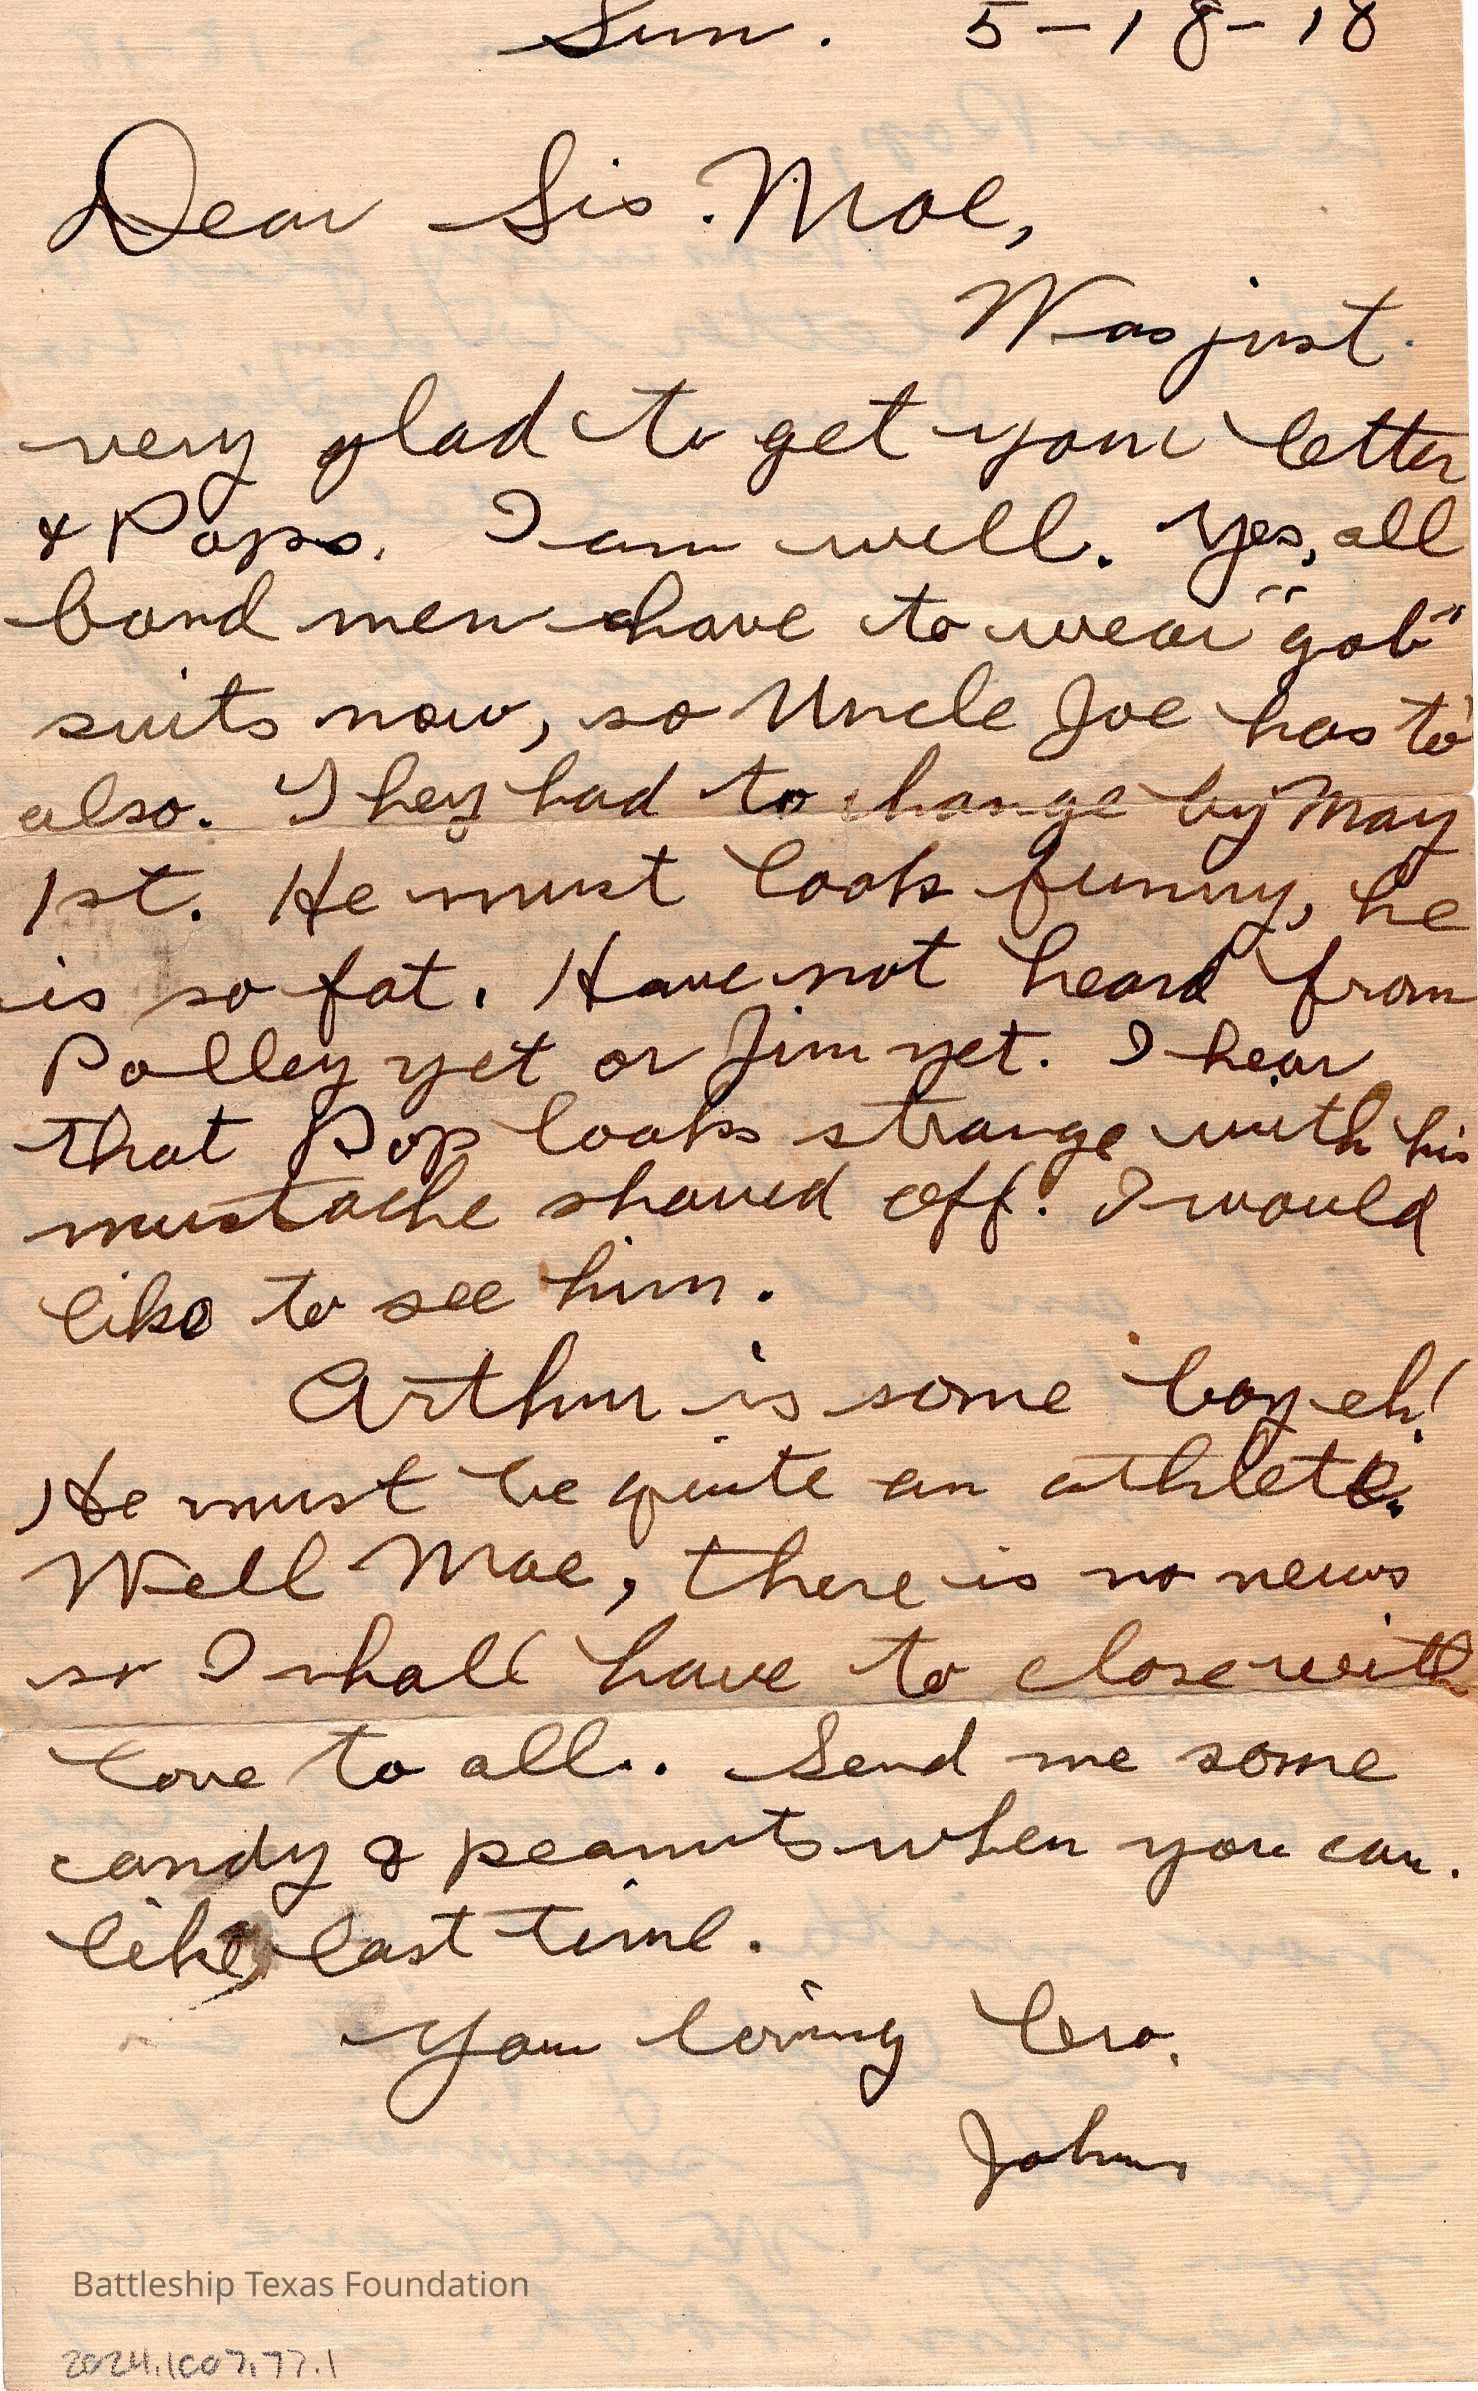 Sun. 5-18-18
Dear Sis Mae,
Was just
very glad to get your letter
& Pops. I am well. Yes, all
band men have to wear "gob"
suits now, so Uncle Joe has to
also. They had to change by May
1st. He must look funny, he
is so fat. Have not heard from
Polley yet or Jim yet. I hear
that Pop looks strange with his
mustache shaved off. I would
like to see him.
Arthur is some boy eh!
He must be quite an athlete.
Well Mae, there is no news
so I shall have to close with
love to all. Send me some
candy & peanuts when you can.
like last time.
Your loving bro.
John
Battleship Texas Foundation
2024.1007.77.1